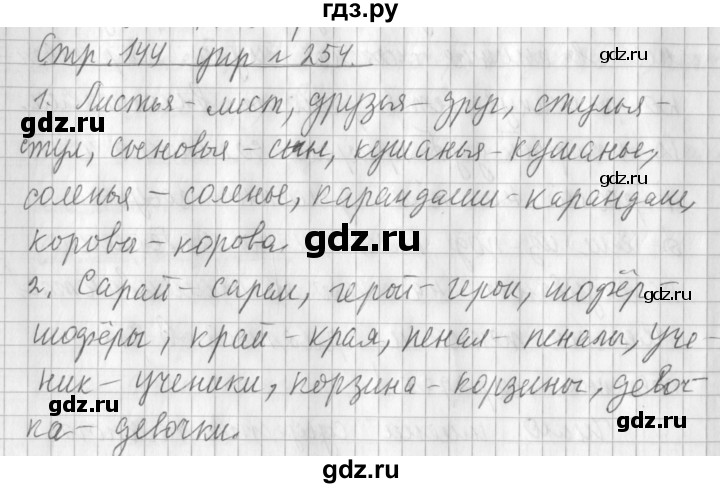 гдз.ру
Стр. 144 упр. № 254.
gdz.ru
1. Листья – лист, друзья – друг, стулья –
gdz.ru
стул, сыновья – сын, кушанья – кушанье,
gdz.ru
соленья – соленье, карандаши – карандаш,
коровы – корова.
gdz.ru
2. Сарай – сараи, герой – герои, шофёр –
gdz.ru
шофёры, край – края, пенал – пеналы, уче-
gdz.ru
ник – ученики, корзина – корзины, девоч-
gdz.ru
gdz.ru
ка – девочки.
gdz.ru
gdz.ru